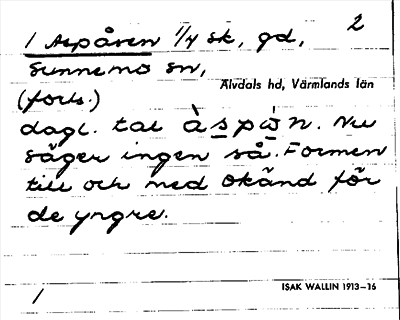 2
1 Aspåsen 1/4 sk, gd,
Sunnemo sn,
Älvdals hd, Värmlands län
(forts.)
dagl. tal àspòn. Nu
säger ingen så. Formen
till och med okänd för
de yngre.
ISAK WALLIN 1913–16
1